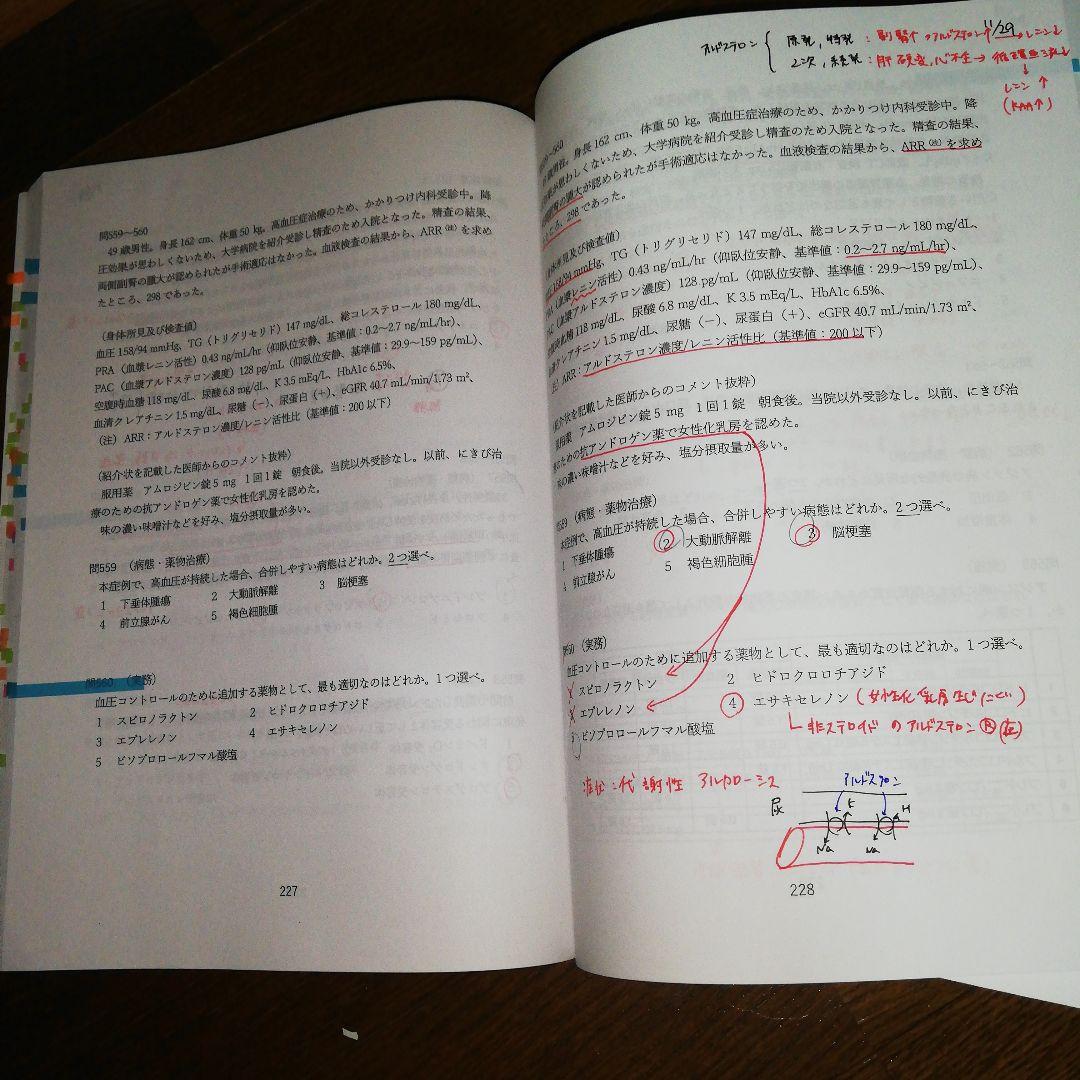 問559～560
49歳男性。身長162 cm、体重50 kg。高血圧症治療のため、かかりつけ内科受診中。降
圧効果が思わしくないため、大学病院を紹介受診し精査のため入院となった。精査の結果、
両側副腎の腫大が認められたが手術適応はなかった。血液検査の結果から、ARR（注）を求め
たところ、298であった。
（身体所見及び検査値）
血圧158/94 mmHg、TG（トリグリセリド）147 mg/dL、総コレステロール180 mg/dL、
PRA（血漿レニン活性）0.43 ng/mL/hr（仰臥位安静、基準値：0.2～2.7 ng/mL/hr）、
PAC（血漿アルドステロン濃度）128 pg/mL（仰臥位安静、基準値：29.9～159 pg/mL）、
空腹時血糖118 mg/dL、尿酸6.8 mg/dL、K 3.5 mEq/L、HbA1c 6.5%、
血清クレアチニン1.5 mg/dL、尿糖（－）、尿蛋白（＋）、eGFR 40.7 mL/min/1.73 m²、
（注）ARR：アルドステロン濃度/レニン活性比（基準値：200以下）
（紹介状を記載した医師からのコメント抜粋）
服用薬　アムロジピン錠5 mg　1回1錠　朝食後。当院以外受診なし。以前、にきび治
療のための抗アンドロゲン薬で女性化乳房を認めた。
味の濃い味噌汁などを好み、塩分摂取量が多い。
問559　（病態・薬物治療）
本症例で、高血圧が持続した場合、合併しやすい病態はどれか。2つ選べ。
1　下垂体腫瘍　2　大動脈解離　3　脳梗塞
4　前立腺がん　5　褐色細胞腫
問560　（実務）
血圧コントロールのために追加する薬物として、最も適切なのはどれか。1つ選べ。
1　スピロノラクトン　2　ヒドロクロロチアジド
3　エプレレノン　4　エサキセレノン
5　ビソプロロールフマル酸塩
227
11/29
原発, 特発：副腎 アルドステロン↑ → レニン↓
2次, 続発：肝硬変, 心不全→循環血流↓
レニン↑
(RAA↑)
～560
歳男性。身長162 cm、体重50 kg。高血圧症治療のため、かかりつけ内科受診中。降
果が思わしくないため、大学病院を紹介受診し精査のため入院となった。精査の結果、
副腎の腫大が認められたが手術適応はなかった。血液検査の結果から、ARR（注）を求め
ころ、298であった。
体所見及び検査値）
158/94 mmHg、TG（トリグリセリド）147 mg/dL、総コレステロール180 mg/dL、
A（血漿レニン活性）0.43 ng/mL/hr（仰臥位安静、基準値：0.2～2.7 ng/mL/hr）、
AC（血漿アルドステロン濃度）128 pg/mL（仰臥位安静、基準値：29.9～159 pg/mL）、
血糖118 mg/dL、尿酸6.8 mg/dL、K 3.5 mEq/L、HbA1c 6.5%、
クレアチニン1.5 mg/dL、尿糖（－）、尿蛋白（＋）、eGFR 40.7 mL/min/1.73 m²、
注）ARR：アルドステロン濃度/レニン活性比（基準値：200以下）
介状を記載した医師からのコメント抜粋）
服用薬　アムロジピン錠5 mg　1回1錠　朝食後。当院以外受診なし。以前、にきび治
のための抗アンドロゲン薬で女性化乳房を認めた。
味の濃い味噌汁などを好み、塩分摂取量が多い。
559　（病態・薬物治療）
本症例で、高血圧が持続した場合、合併しやすい病態はどれか。2つ選べ。
1　下垂体腫瘍　2　大動脈解離　3　脳梗塞
4　前立腺がん　5　褐色細胞腫
560　（実務）
血圧コントロールのために追加する薬物として、最も適切なのはどれか。1つ選べ。
スピロノラクトン　2　ヒドロクロロチアジド
エプレレノン　4　エサキセレノン（女性化乳房生じにくい）
ビソプロロールフマル酸塩　非ステロイドのアルドステロンⓇ
症状：代謝性アルカローシス
アルドステロン
尿　K　H
Na　Na
228